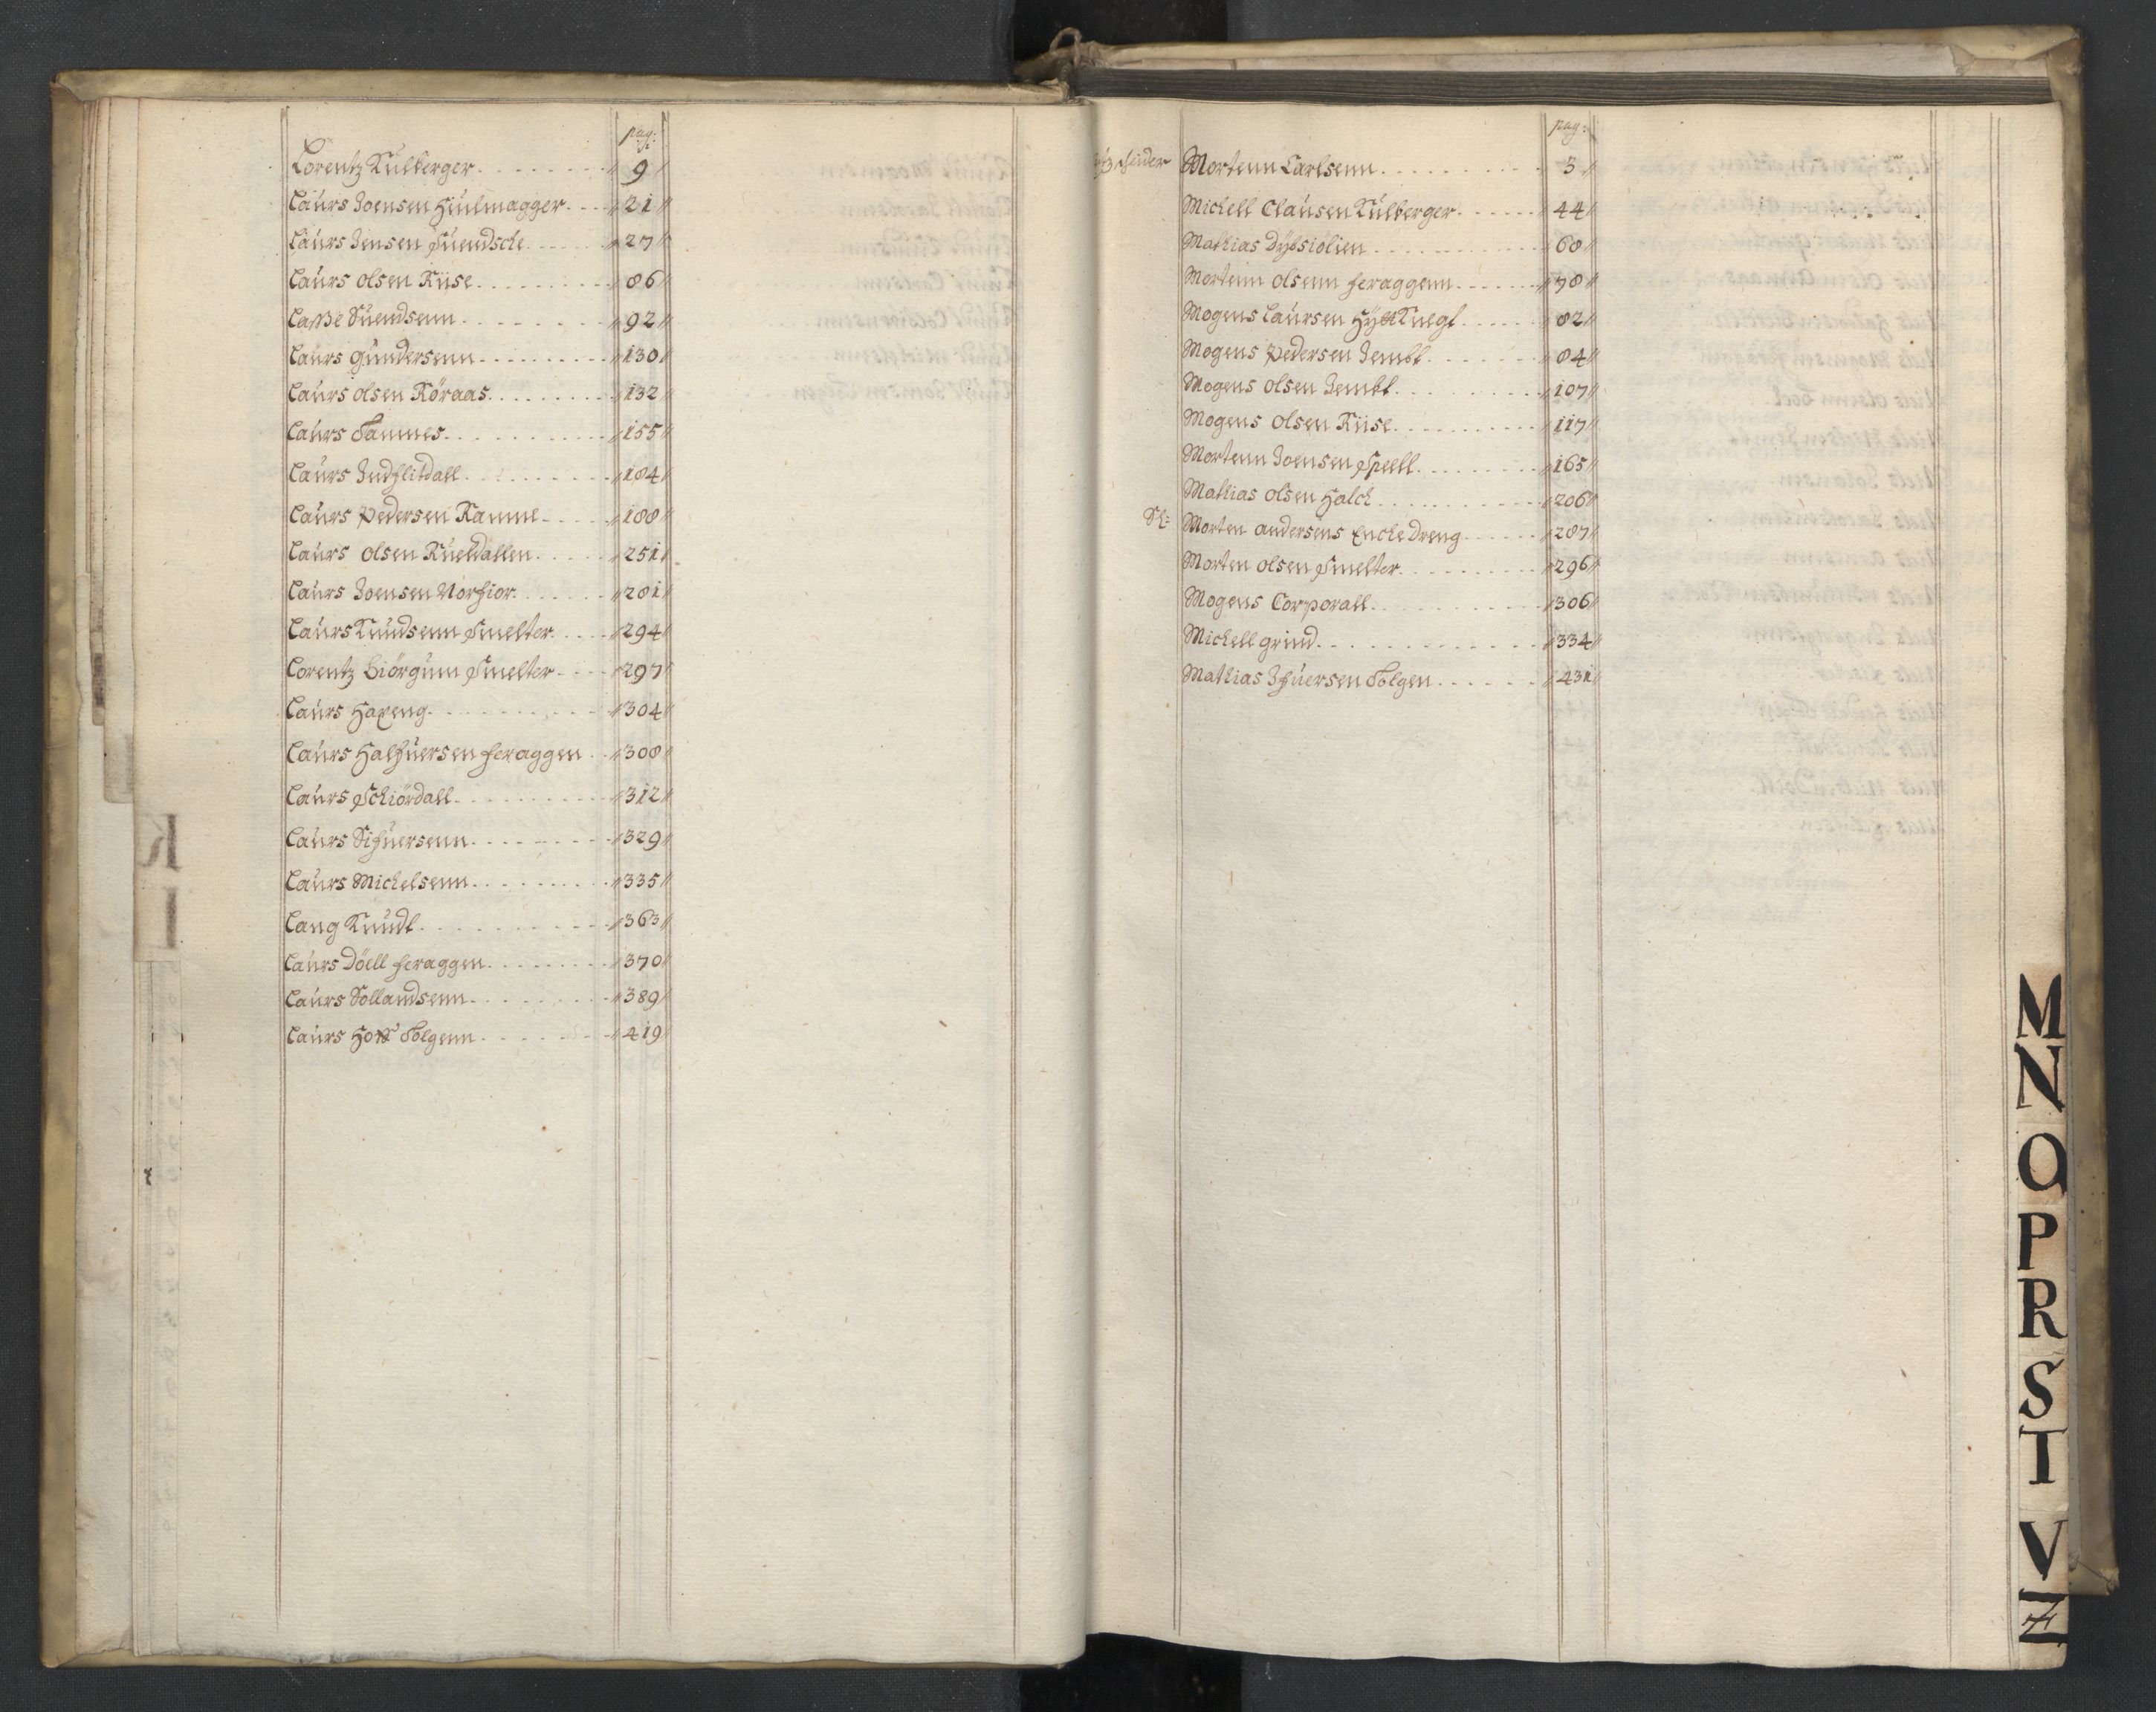 pag:
Lorentz Kulberger 9
Laurs Joensen Hiulmagger 21
Laurs Jensen Suendsche 27
Laurs olsen Riise 86
Laße Suendsenn 92
Laurs gundersenn 130
Laurs olsen Röraas 132
Laurs Tammes 155
Laurs Indslitdall 184
Laurs Pedersen Ramme 188
Laurs olsen Kueldallen 251
Laurs Joensen Norfior 281
Laurs Knudsenn Smelter 294
Lorentz Biörgum Smelter 297
Laurs Haneng 304
Laurs Halfuersen feraggen 308
Laurs Schiördall 312
Laurs Sifuersenn 329
Laurs Michelsenn 335
Lang Knudt 363
Laurs Döell feraggen 370
Laurs Tollandsenn 389
Laurs Hoff Tolgenn 419
pag:
Mortenn Carlsenn 5
Michell Clausen Kulberger 44
Mathias Dybsiölien 68
Mortenn olsenn feraggenn 78
Mogens Laursen HyttKnegt 82
Mogens Pedersen Jembt 84
Mogens olsen Jembt 107
Mogens olsen Riise 117
Mortenn Joensen Spell 165
Mathias olsen Halck 206
Sl: Morten andersens Encke Dreng 287
Morten olsen Smelter 296
Mogens Corporall 306
Michell grind 334
Mathias Ifuersen Tolgen 431
K
L
M
N
O
P
R
S
T
V
Z